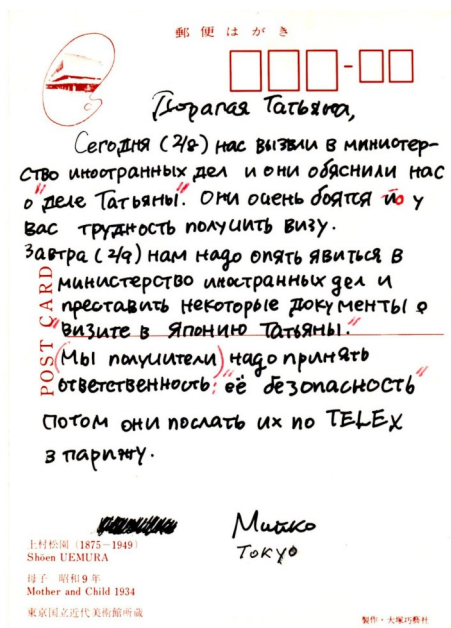 郵便はがき
Дорагая Татьяна,
Сегодня (2/8) нас вызвли в министер-
ство иностранных дел и они обяснили нас
о "деле Татьяны". Они оцень боятся йо у
вас трудность полуцить визу.
Завтра (2/9) нам надо опять явиться в
министерство иностранных дел и
преставить некоторые документы о
"визите в Японию Татьяны."
(Мы полуцители) надо принять
ответственность: "её безопасность"
Потом они послать их по TELEX
в парижу.
Мийко
TOKYO
POST CARD
上村松園 (1875–1949)
Shōen UEMURA
母子 昭和9年
Mother and Child 1934
東京国立近代美術館所蔵
製作・大塚巧藝社